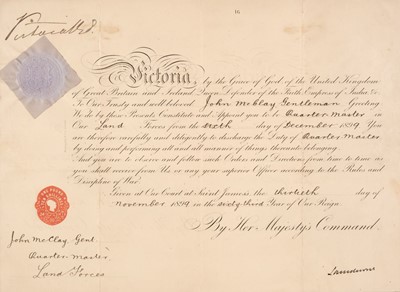 Victoria R.I.
Victoria, by the Grace of God, of the United Kingdom
of Great Britain and Ireland, Queen, Defender of the Faith, Empress of India &c.
To Our Trusty and well beloved John McClay Gentleman Greeting.
We do by these Presents Constitute and Appoint you to be Quarter Master in
Our Land Forces from the sixth day of December 1899. You
are therefore carefully and diligently to discharge the Duty of Quarter Master
by doing and performing all and all manner of things thereunto belonging
And you are to observe and follow such Orders and Directions from time to time as
you shall receive from Us or any your superior Officer according to the Rules and
Discipline of War.
Given at Our Court at Saint James's, the thirtieth day of
November 1899 in the sixty-third Year of Our Reign.
By Her Majesty's Command.
John McClay, Gent.
Quarter Master
Land Forces
Lansdowne